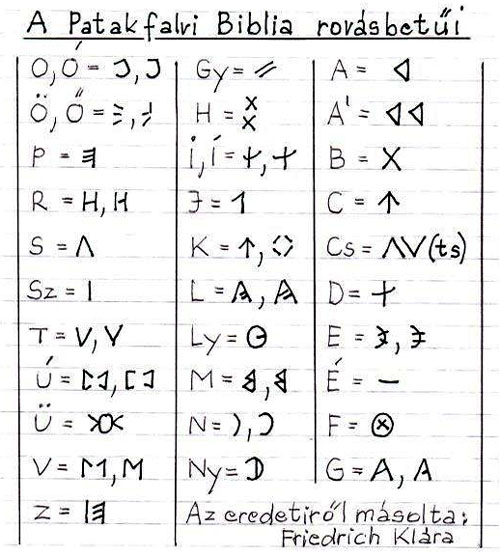 A Patakfalvi Biblia rovásbetűi
O, Ó = Ɔ, Ɔ Gy = ⫽ A = ◁
Ö, Ő = H = X X A' = ◁◁
P = İ, Í = ϯ, ϯ B = X
R = H, H J = 1 C = ↑
S = Λ K = ↑, ◇ Cs = ΛV (ts)
Sz = | L = D = ϯ
T = V, Y Ly = E =
Ú = M = É = –
Ü = N = ), Ɔ F = ⊗
V = M, M Ny = G = A, A
Z = Az eredetiről másolta:
Friedrich Klára